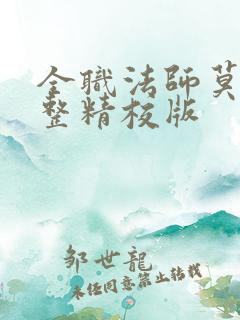 全职法师莫
整精校版
邹世龙
未经同意禁止转载